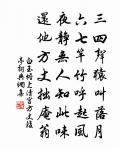 三四聲猿叫落月
六七竿竹呼起風
夜靜無人知此味
還他方丈拙庵翁
白玉蟾上清宮方丈後
亭 詩典網書